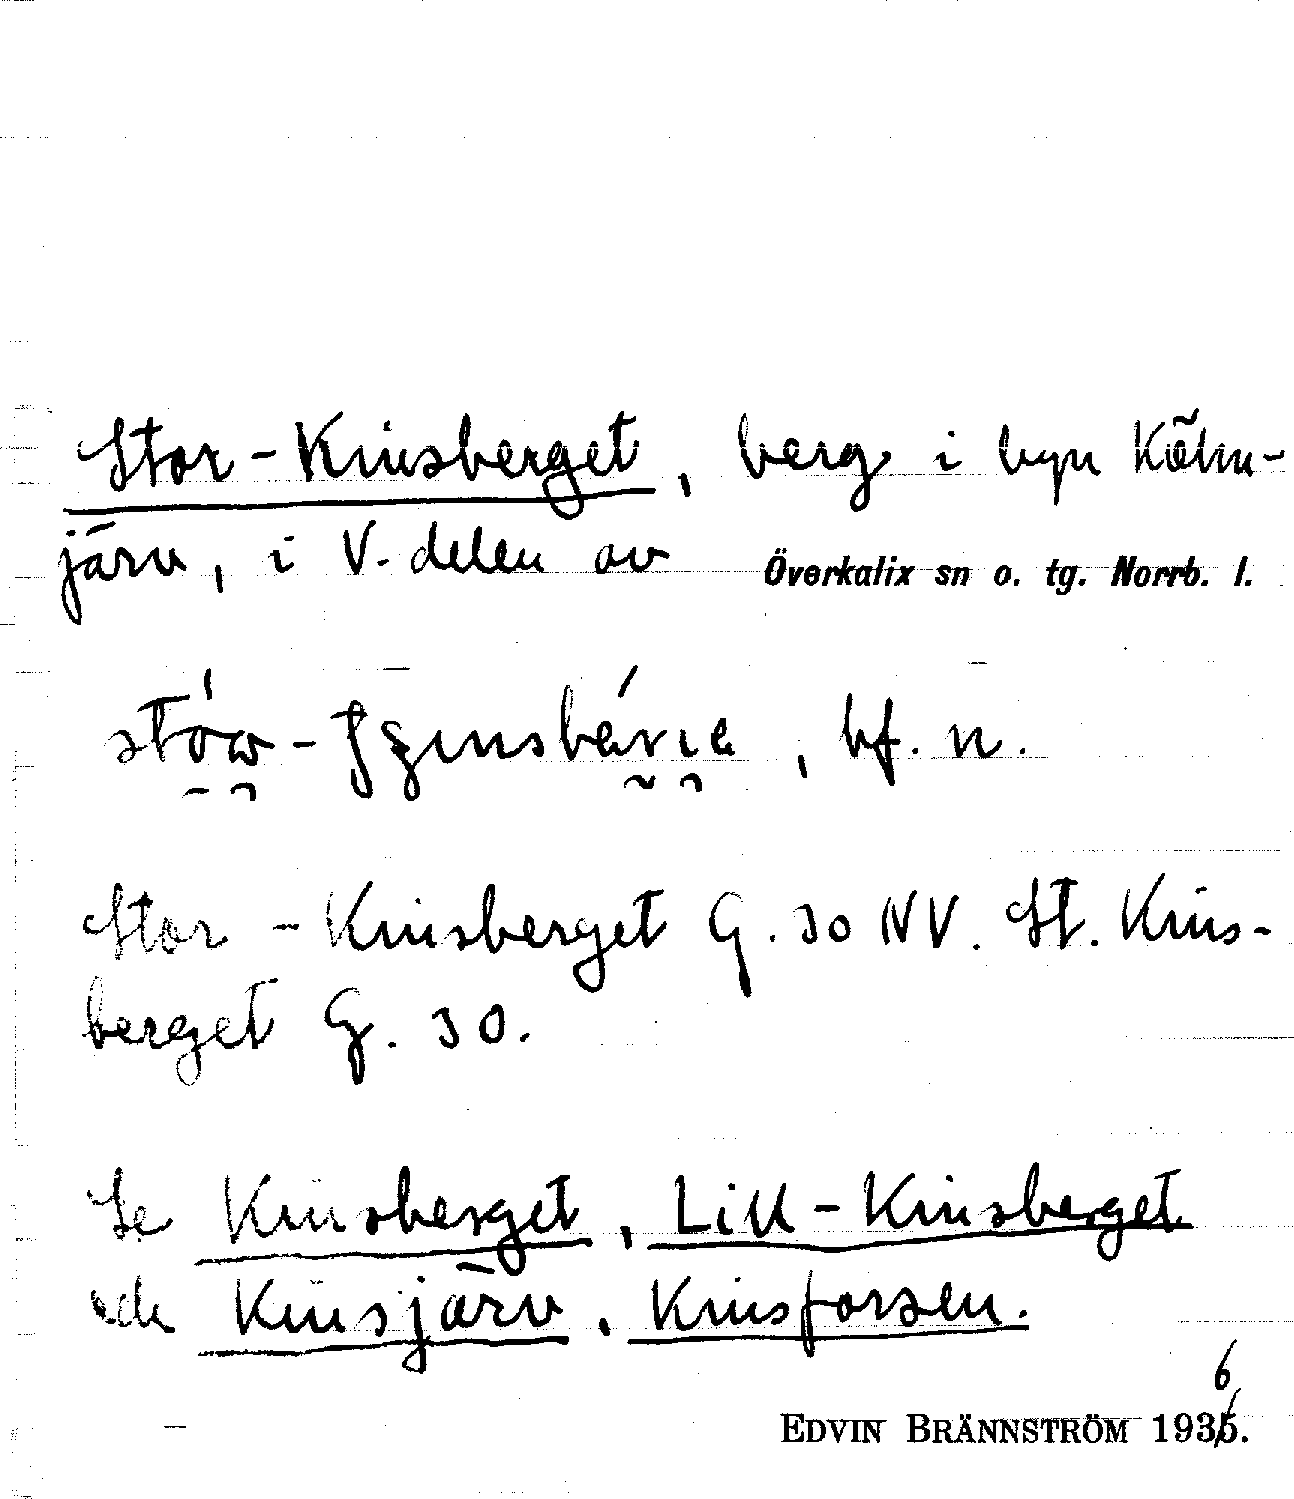 Stor-Kinsberget, berg i byn Kölm-
järv, i V. delen av Överkalix sn o. tg. Norrb. l.
, bf. n.
Stor-Kinsberget G. 30 NV. St. Kins-
berget G. 30.
Se Kinsberget, Lill-Kinsberget
och Kinsjärv, Kinsforsen.
6
EDVIN BRÄNNSTRÖM 1935.